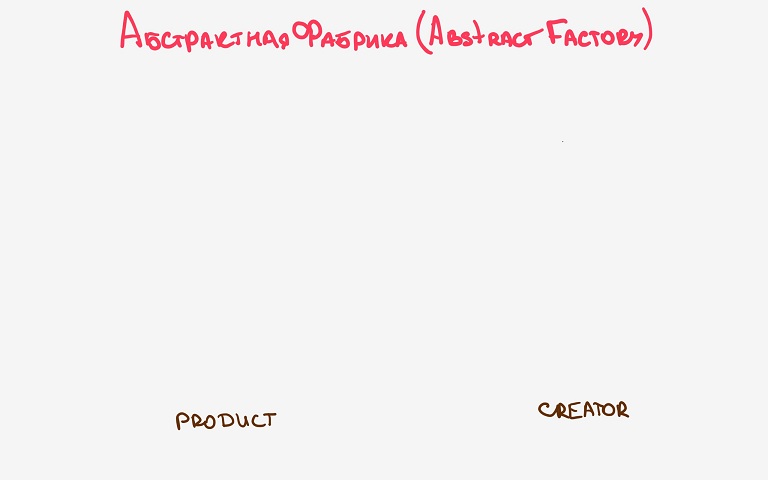 Абстрактная Фабрика (Abstract Factory)
PRODUCT
CREATOR